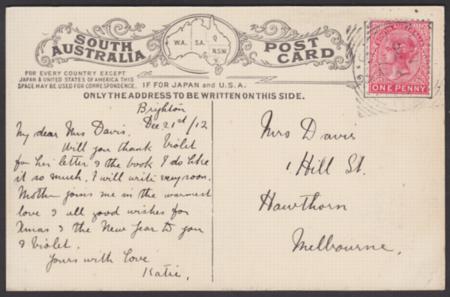 SOUTH AUSTRALIA
W.A. S.A. Q N.S.W. V
POST CARD
FOR EVERY COUNTRY EXCEPT
JAPAN & UNITED STATES OF AMERICA THIS
SPACE MAY BE USED FOR CORRESPONDENCE.
IF FOR JAPAN and U.S.A.
ONLY THE ADDRESS TO BE WRITTEN ON THIS SIDE.
SOUTH AUSTRALIA
ONE PENNY
Brighton
Dec 21st/12
My dear Mrs Davis.
Will you thank Violet
for her letter & the book I do like
it so much. I will write very soon.
Mother joins me in the warmest
love & all good wishes for
Xmas & the New Year to you
& Violet.
Yours with Love
Katie.
Mrs Davis
1 Hill St.
Hawthorn
Melbourne.